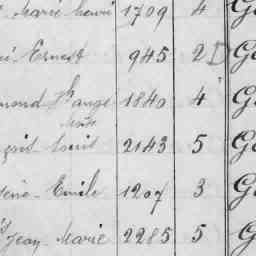 Marie Henri 1709 4 G
Ernest 945 2 D G
mond Ph ange 1840 4 G
Marie
çois Louis 2143 5 G
Emile 1207 3 G
Jean Marie 2285 5 G